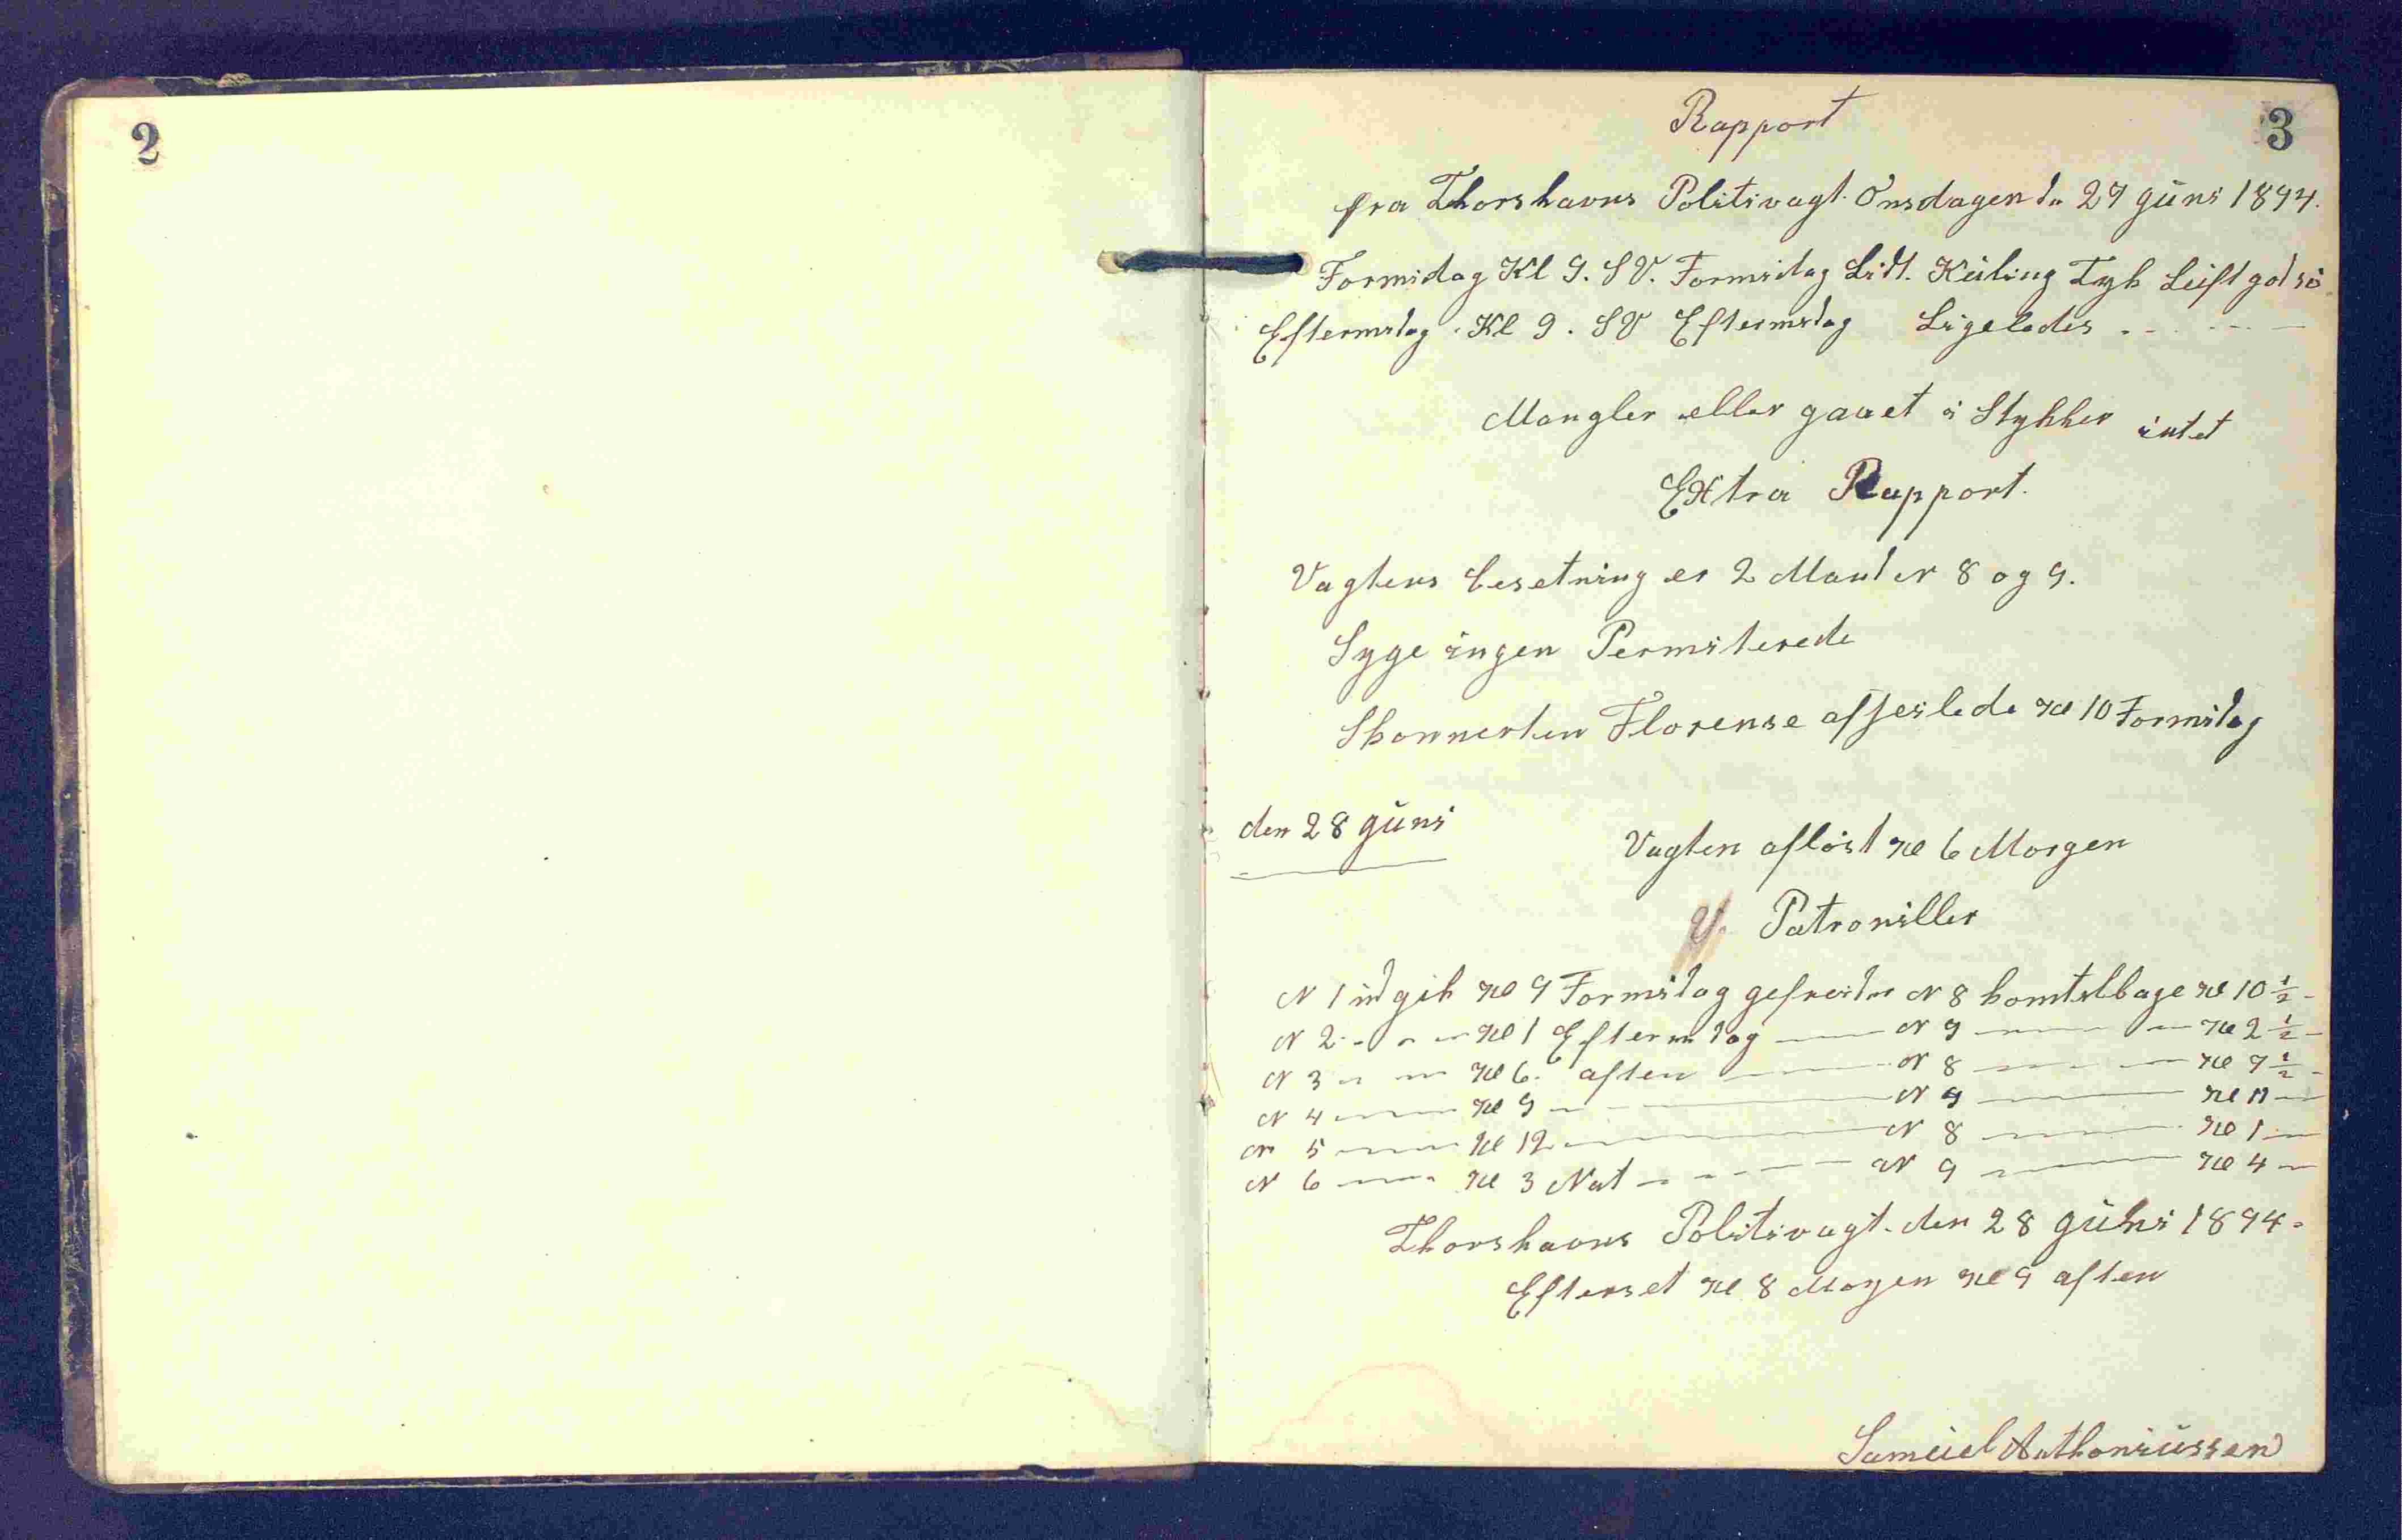 2
3
Rapport
fra Thorshavns Politivagt. Onsdagen d. 27 Juni 1894.
Formidag Kl 9. SV. Formidag Lidt. Kuling Tyk Luft got sö
Eftermidag. Kl 9. SV Eftermidag Ligeledes
Mangler eller gaaet i Stykker intet
Extra Rapport.
Vagtens besetning er 2 Mand er 8 og 9.
Syge ingen Permiterede
Skonnerten Florense afseilede Kl 10 Formidag
den 28 Juni
Vagten aflöst Kl 6 Morgen
V. Patroniller
N 1 ud gik Kl 9 Formidag gefreider N 8 komtilbage Kl 10 ½
N 2 Kl 1 Eftermidag N 9 Kl 2 ½
N 3 Kl 6. aften N 8 Kl 7 ½
N 4 Kl 9 N 9 Kl 11
N 5 Kl 12 N 8 Kl 1
N 6 Kl 3 Nat N 9 Kl 4
Thorshavns Politivagt. den 28 Juni 1894.
Efterset Kl 8 Morgen Kl 9 aften
Samuel Anthoniussen